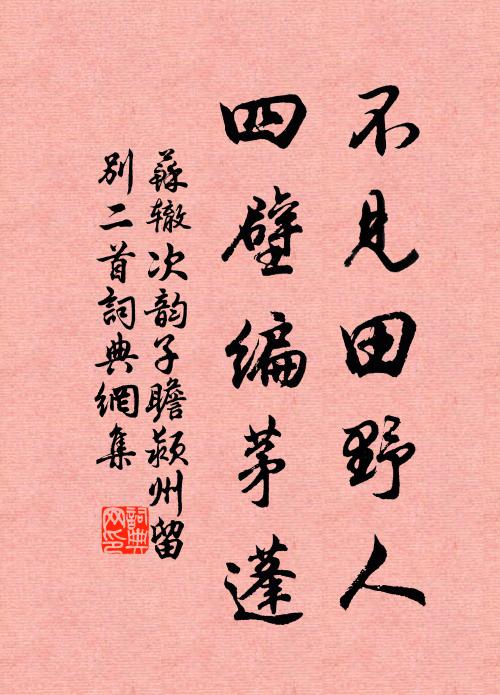 不見田野人
四壁編茅蓬
蘇辙次韵子瞻颍州留
別二首詞典網集
詞典网印